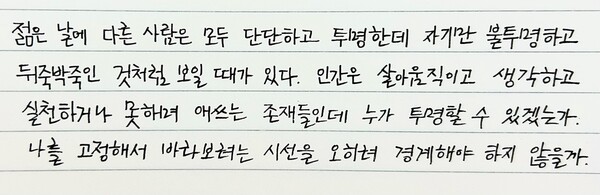 젊은 날에 다른 사람은 모두 단단하고 투명한데 자기만 불투명하고
뒤죽박죽인 것처럼 보일 때가 있다. 인간은 살아움직이고 생각하고
실천하거나 못해려 애쓰는 존재들인데 누가 투명할 수 있겠는가.
나를 고정해서 바라보려는 시선을 오히려 경계해야 하지 않을까.